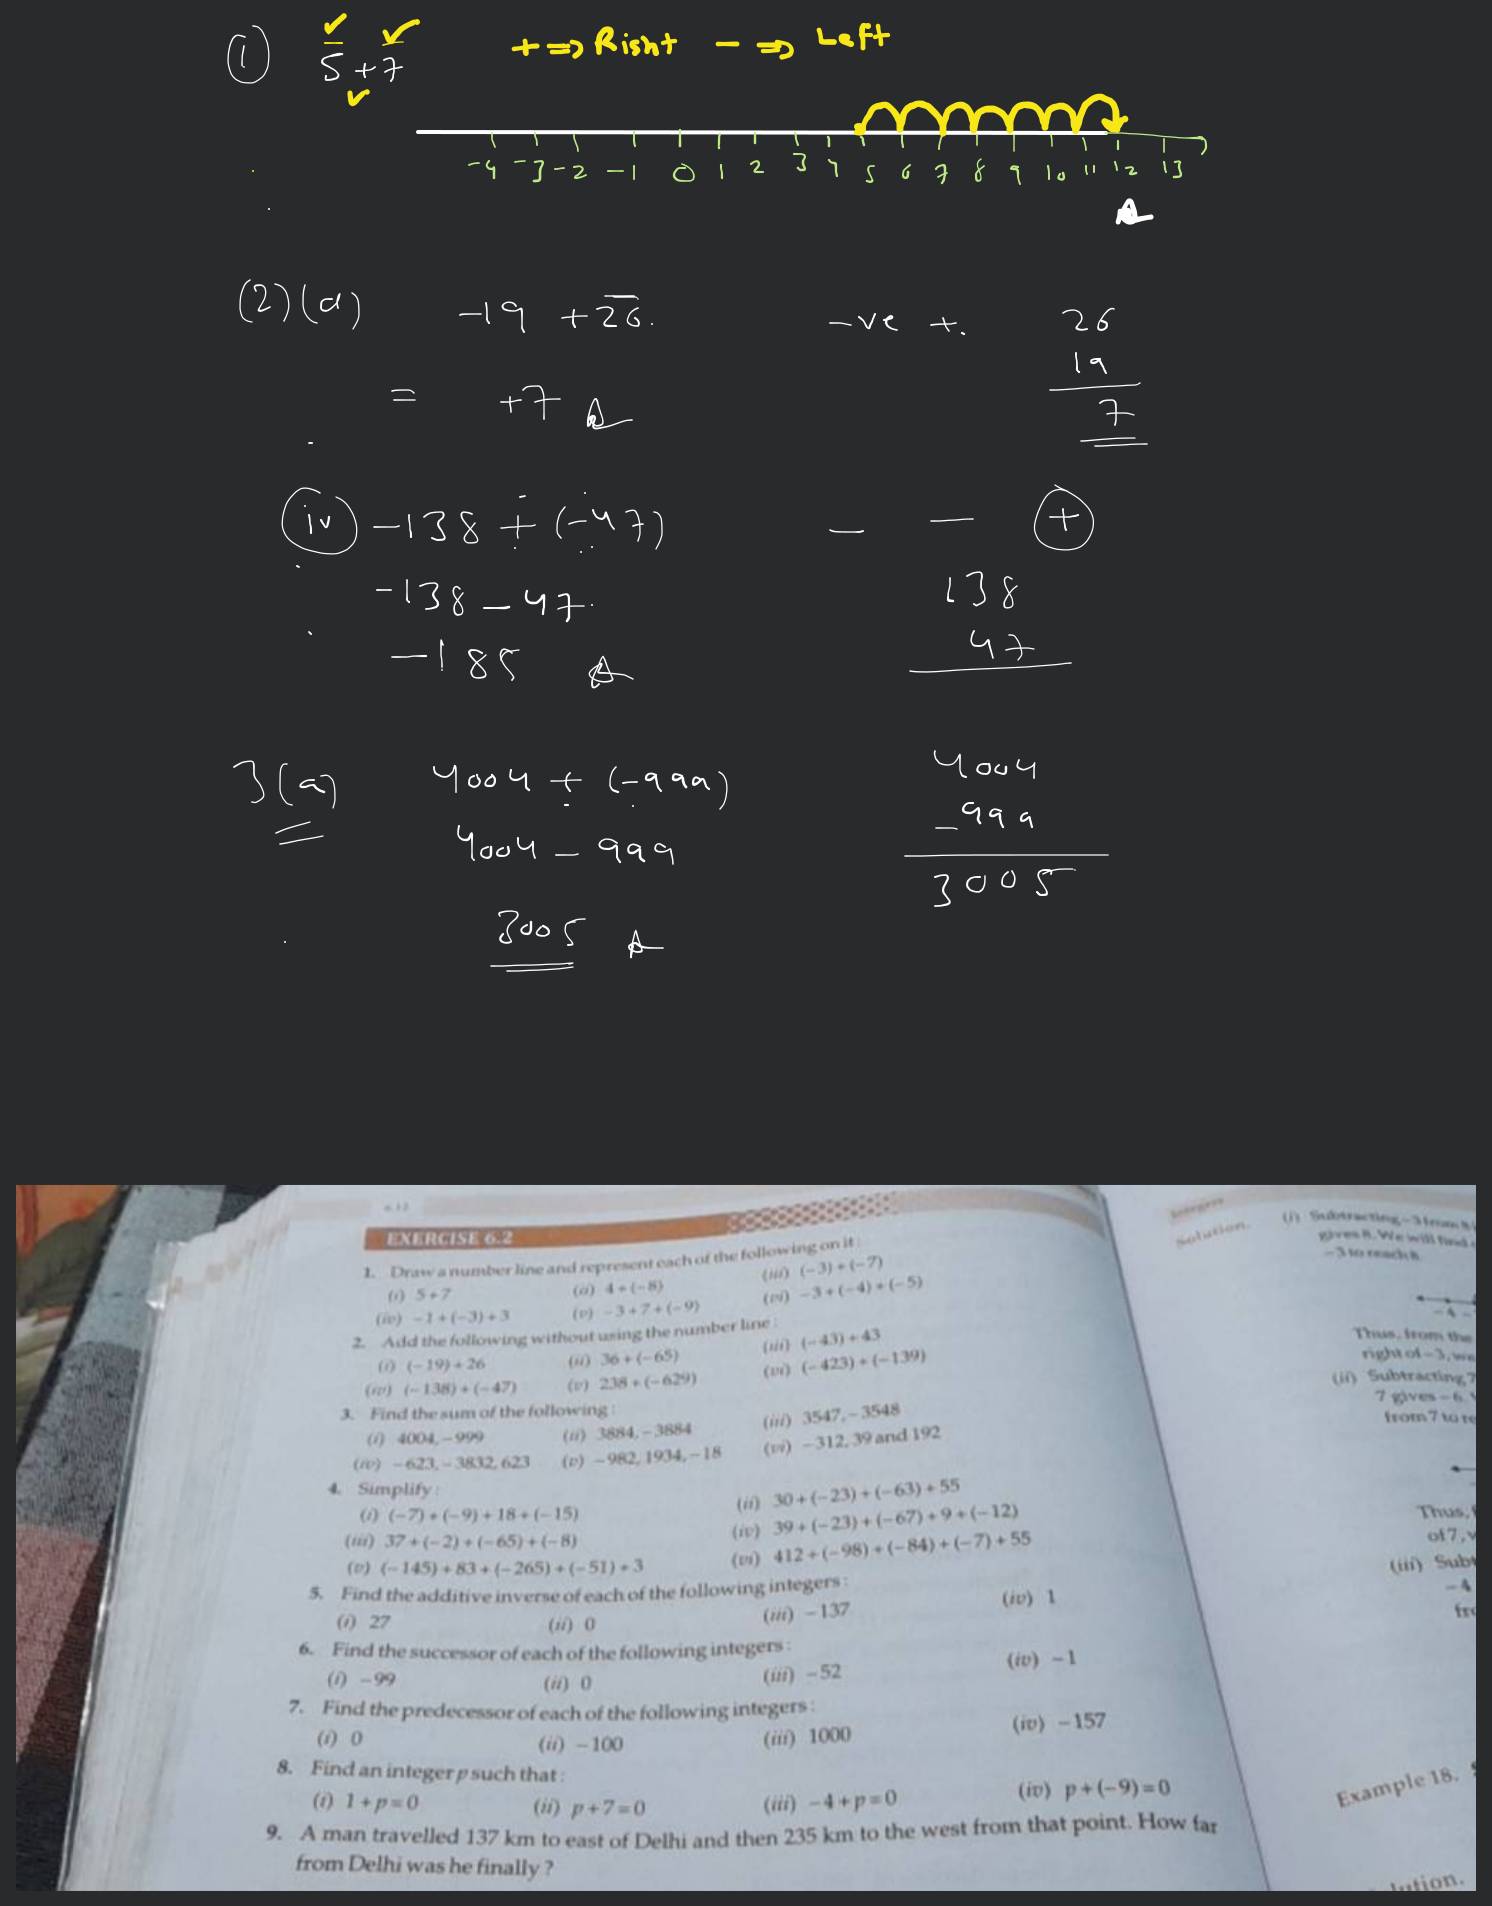 ① 5+7 + ⇒ Right - ⇒ Left
-4 -3 -2 -1 0 1 2 3 4 5 6 7 8 9 10 11 12 13
A
(2)(a) -19 +26. -ve +. 26
19
= +7 A 7
(iv) -138 + (-47) - - +
-138 - 47. 138
-185 A 47
3(a) 4004 + (-999) 4004
4004 - 999 -999
3005
3005 A
EXERCISE 6.2
1. Draw a number line and represent each of the following on it:
(i) 5+7 (ii) 4+(-8) (iii) (-3)+(-7)
(iv) -1+(-3)+3 (v) -3+7+(-9) (vi) -3+(-4)+(-5)
2. Add the following without using the number line:
(i) (-19)+26 (ii) 36+(-65) (iii) (-43)+43
(iv) (-138)+(-47) (v) 238+(-629) (vi) (-423)+(-139)
3. Find the sum of the following:
(i) 4004, -999 (ii) 3884, -3884 (iii) 3547, -3548
(iv) -623, -3832, 623 (v) -982, 1934, -18 (vi) -312, 39 and 192
4. Simplify:
(i) (-7)+(-9)+18+(-15) (ii) 30+(-23)+(-63)+55
(iii) 37+(-2)+(-65)+(-8) (iv) 39+(-23)+(-67)+9+(-12)
(v) (-145)+83+(-265)+(-51)+3 (vi) 412+(-98)+(-84)+(-7)+55
5. Find the additive inverse of each of the following integers:
(i) 27 (ii) 0 (iii) -137 (iv) 1
6. Find the successor of each of the following integers:
(i) -99 (ii) 0 (iii) -52 (iv) -1
7. Find the predecessor of each of the following integers:
(i) 0 (ii) -100 (iii) 1000 (iv) -157
8. Find an integer p such that:
(i) 1+p=0 (ii) p+7=0 (iii) -4+p=0 (iv) p+(-9)=0
9. A man travelled 137 km to east of Delhi and then 235 km to the west from that point. How far
from Delhi was he finally?
Integers
Solution. (i) Subtracting -3 from 8
gives 8. We will find
-3 to reach 8.
Thus, from the
right of -3, we
(ii) Subtracting 7
7 gives -6.
from 7 to re
Thus,
of 7,
(iii) Subt
-4
fro
Example 18.
lution.